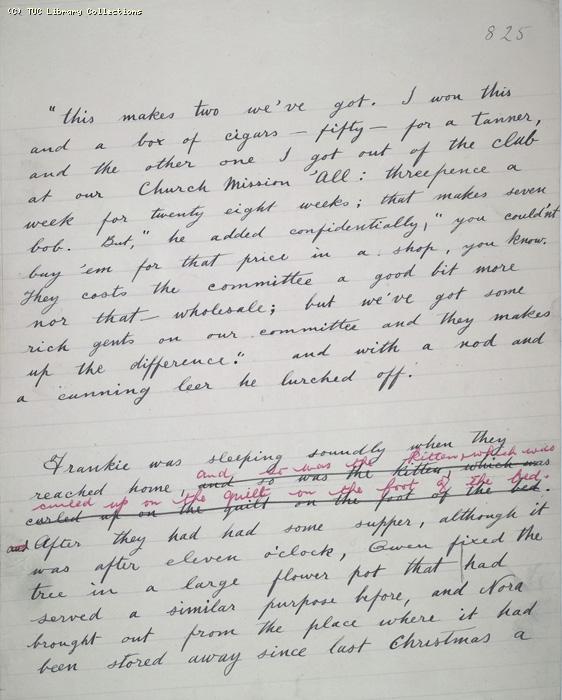 (C) TUC Library Collections
825
"this makes two we've got. I won this
and a box of cigars — fifty — for a tanner,
and the other one I got out of the club
at our Church Mission 'All: threepence a
week for twenty eight weeks; that makes seven
bob. But," he added confidentially, "you couldn't
buy 'em for that price in a shop, you know.
They costs the committee a good bit more
nor that — wholesale; but we've got some
rich gents on our committee and they makes
up the difference." and with a nod and
a cunning leer he lurched off.
Frankie was sleeping soundly when they
and so was the kitten, which was
reached home, and so was the kitten, which was
curled up on the quilt on the foot of the bed.
curled up on the quilt on the foot of the bed.
and After they had had some supper, although it
was after eleven o'clock, Owen fixed the
tree in a large flower pot that had
served a similar purpose before, and Nora
brought out from the place where it had
been stored away since last Christmas a